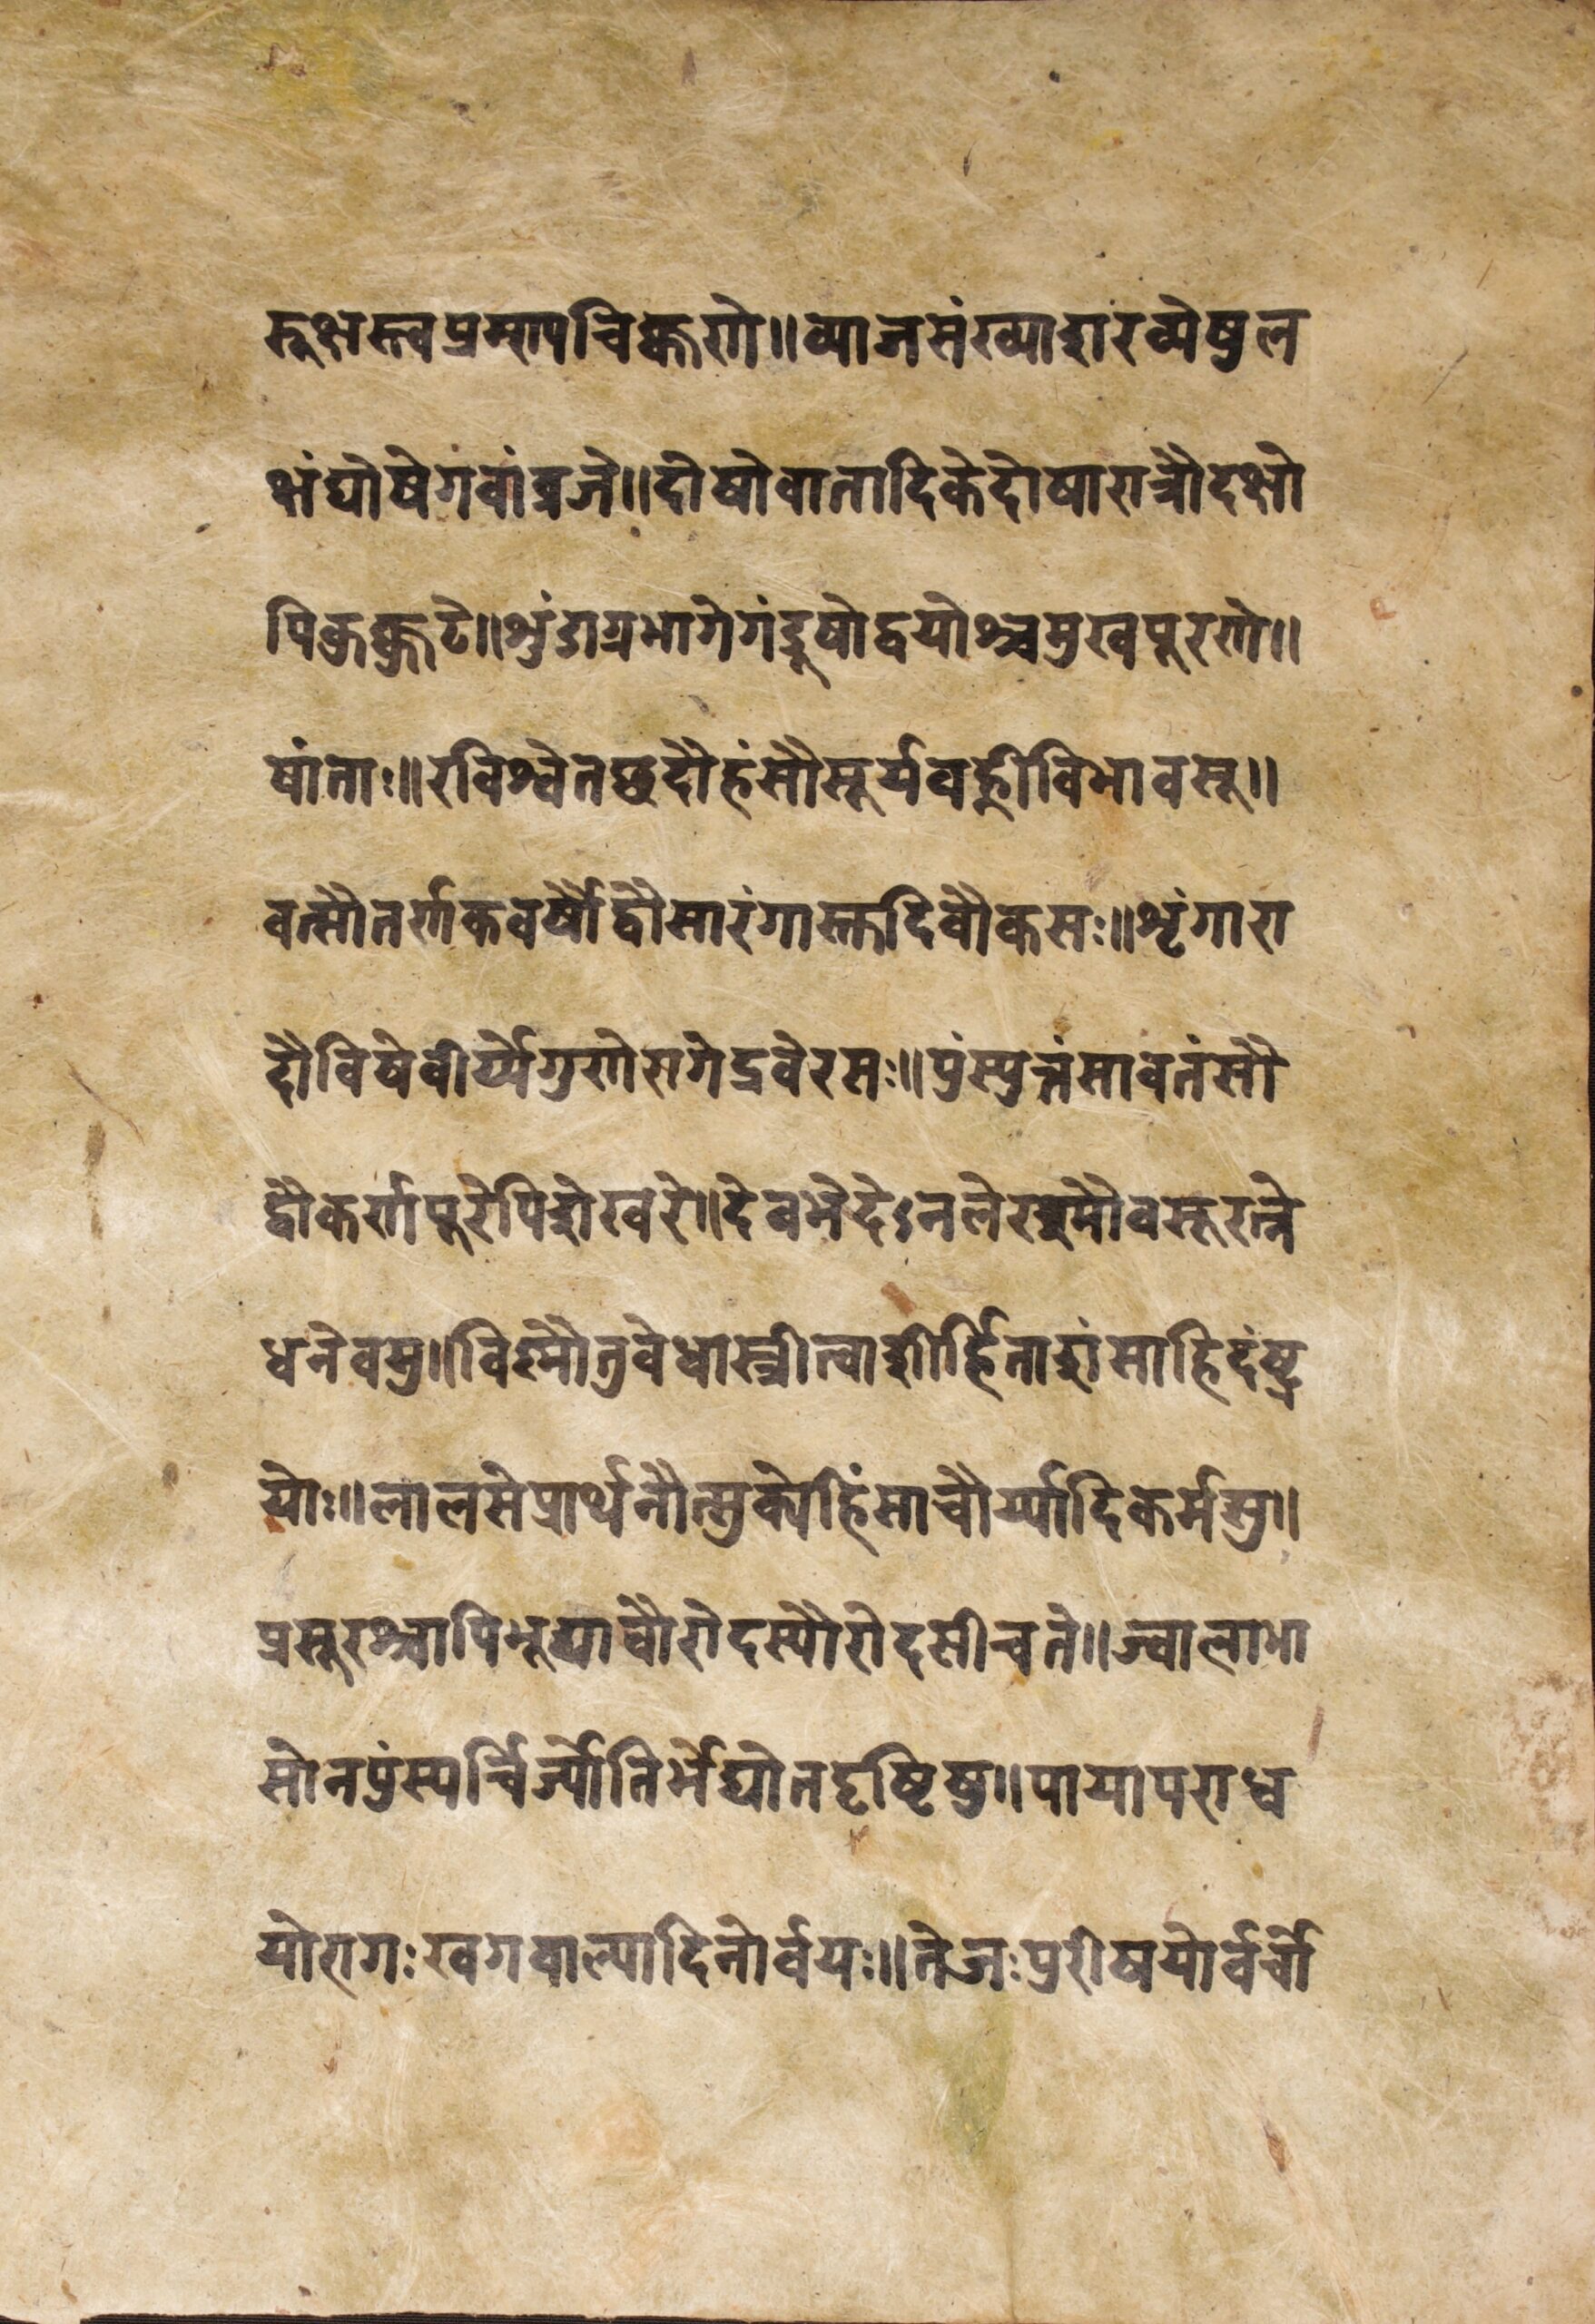 स्तूक्षस्त्वप्रेम्ण्यचिक्कणे॥व्याजसंख्याशरव्येषुल
क्षंघोषेगवांव्रजे॥दोषोवातादिकेदोषारात्रौदक्षो
पिकुक्कुटे॥शुंडाग्रभागेगंडूषोद्वयोश्चमुखपूरणे॥
षांताः॥रविश्वेतछदौहंसौसूर्यवह्नीविभावसू॥
वत्सौतर्णकवर्षौद्वौसारंगास्तदिवौकसः॥शृंगारा
दौविषेवीर्य्येगुणेरागेद्रवेरसः॥पुंस्पुत्तंसावतंसौ
द्वौकर्णपूरेपिशेखरे॥देवभेदेऽनलेरश्मौवसूरत्ने
धनेवसु॥विष्णौतुवेधास्त्रीत्वाशीर्हिताशंसाहिदंष्ट्र
योः॥लालसेप्रार्थनौत्सुक्येहिंसाचौर्य्यादिकर्मसु॥
प्रसूरश्चापिभूद्यावौरोदस्यौरोदसीचते॥ज्वालाभा
सोनपुंस्यर्च्चिर्ज्योतिर्भद्योतदृष्टिषु॥पापापराध
योरागःखगबाल्यादिनोर्वयः॥तेजःपुरीषयोर्वर्चो